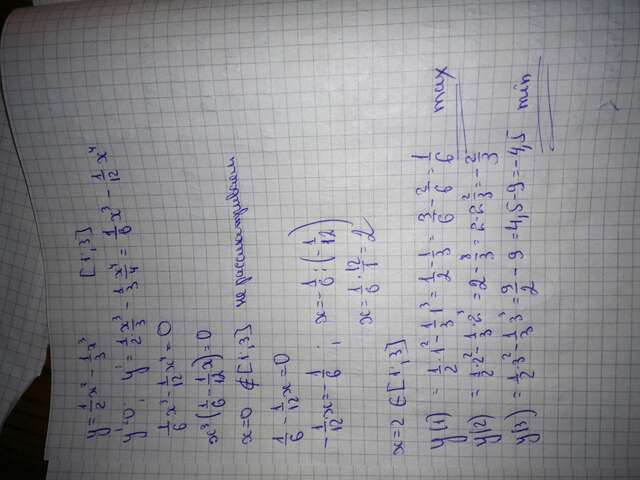 y = 1/2 x² - 1/3 x³ [1; 3]
y' = 0; y' = 1/2 x³/3 - 1/3 x⁴/4 = 1/6 x³ - 1/12 x⁴
1/6 x³ - 1/12 x⁴ = 0
x³(1/6 - 1/12 x) = 0
x = 0 ∉ [1; 3] не рассматриваем
1/6 - 1/12 x = 0
-1/12 x = -1/6; x = -1/6 : (-1/12)
x = 1/6 · 12/1 = 2
x = 2 ∈ [1; 3]
y(1) = 1/2 · 1² - 1/3 · 1³ = 1/2 - 1/3 = 3/6 - 2/6 = 1/6 max
y(2) = 1/2 · 2² - 1/3 · 2³ = 2 - 8/3 = 2 - 2 2/3 = -2/3
y(3) = 1/2 3² - 1/3 3³ = 9/2 - 9 = 4,5 - 9 = -4,5 min